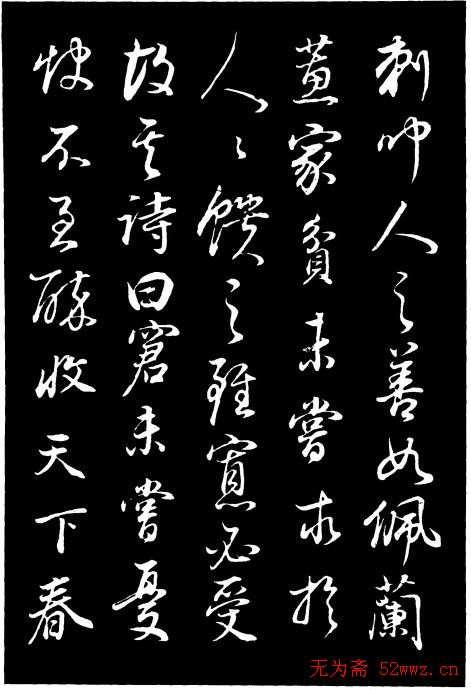 刺聞人之善如佩蘭
蕙家貧未嘗求於
人々饋之雖寡必受
故其詩曰窘未嘗憂
飲不至醉收天下春
无为斋 52wwz.cn